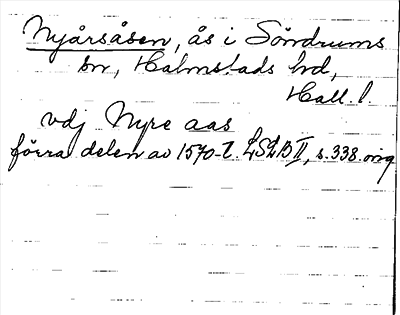 Nyårsåsen, ås i Söndrums
sn, Halmstads hd,
Hall. l.
vdj Nyre aas
förra delen av 1570-t. LSLB II, s. 338. orig